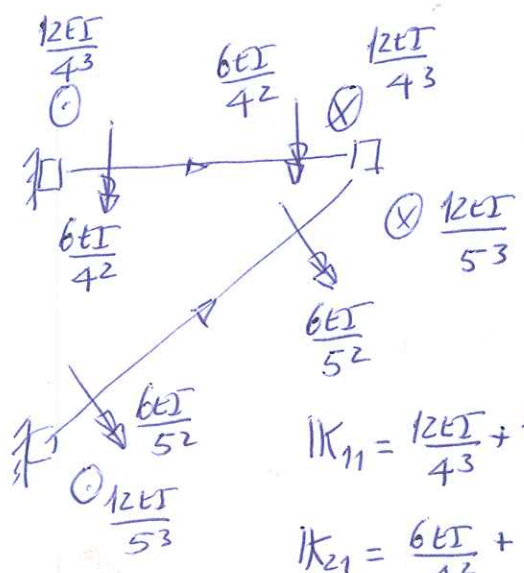 12EI/4³
6EI/4²
12EI/4³
6EI/4²
12EI/5³
6EI/5²
6EI/5²
12EI/5³
K₁₁ = 12EI/4³ +
K₂₁ = 6EI/4² +